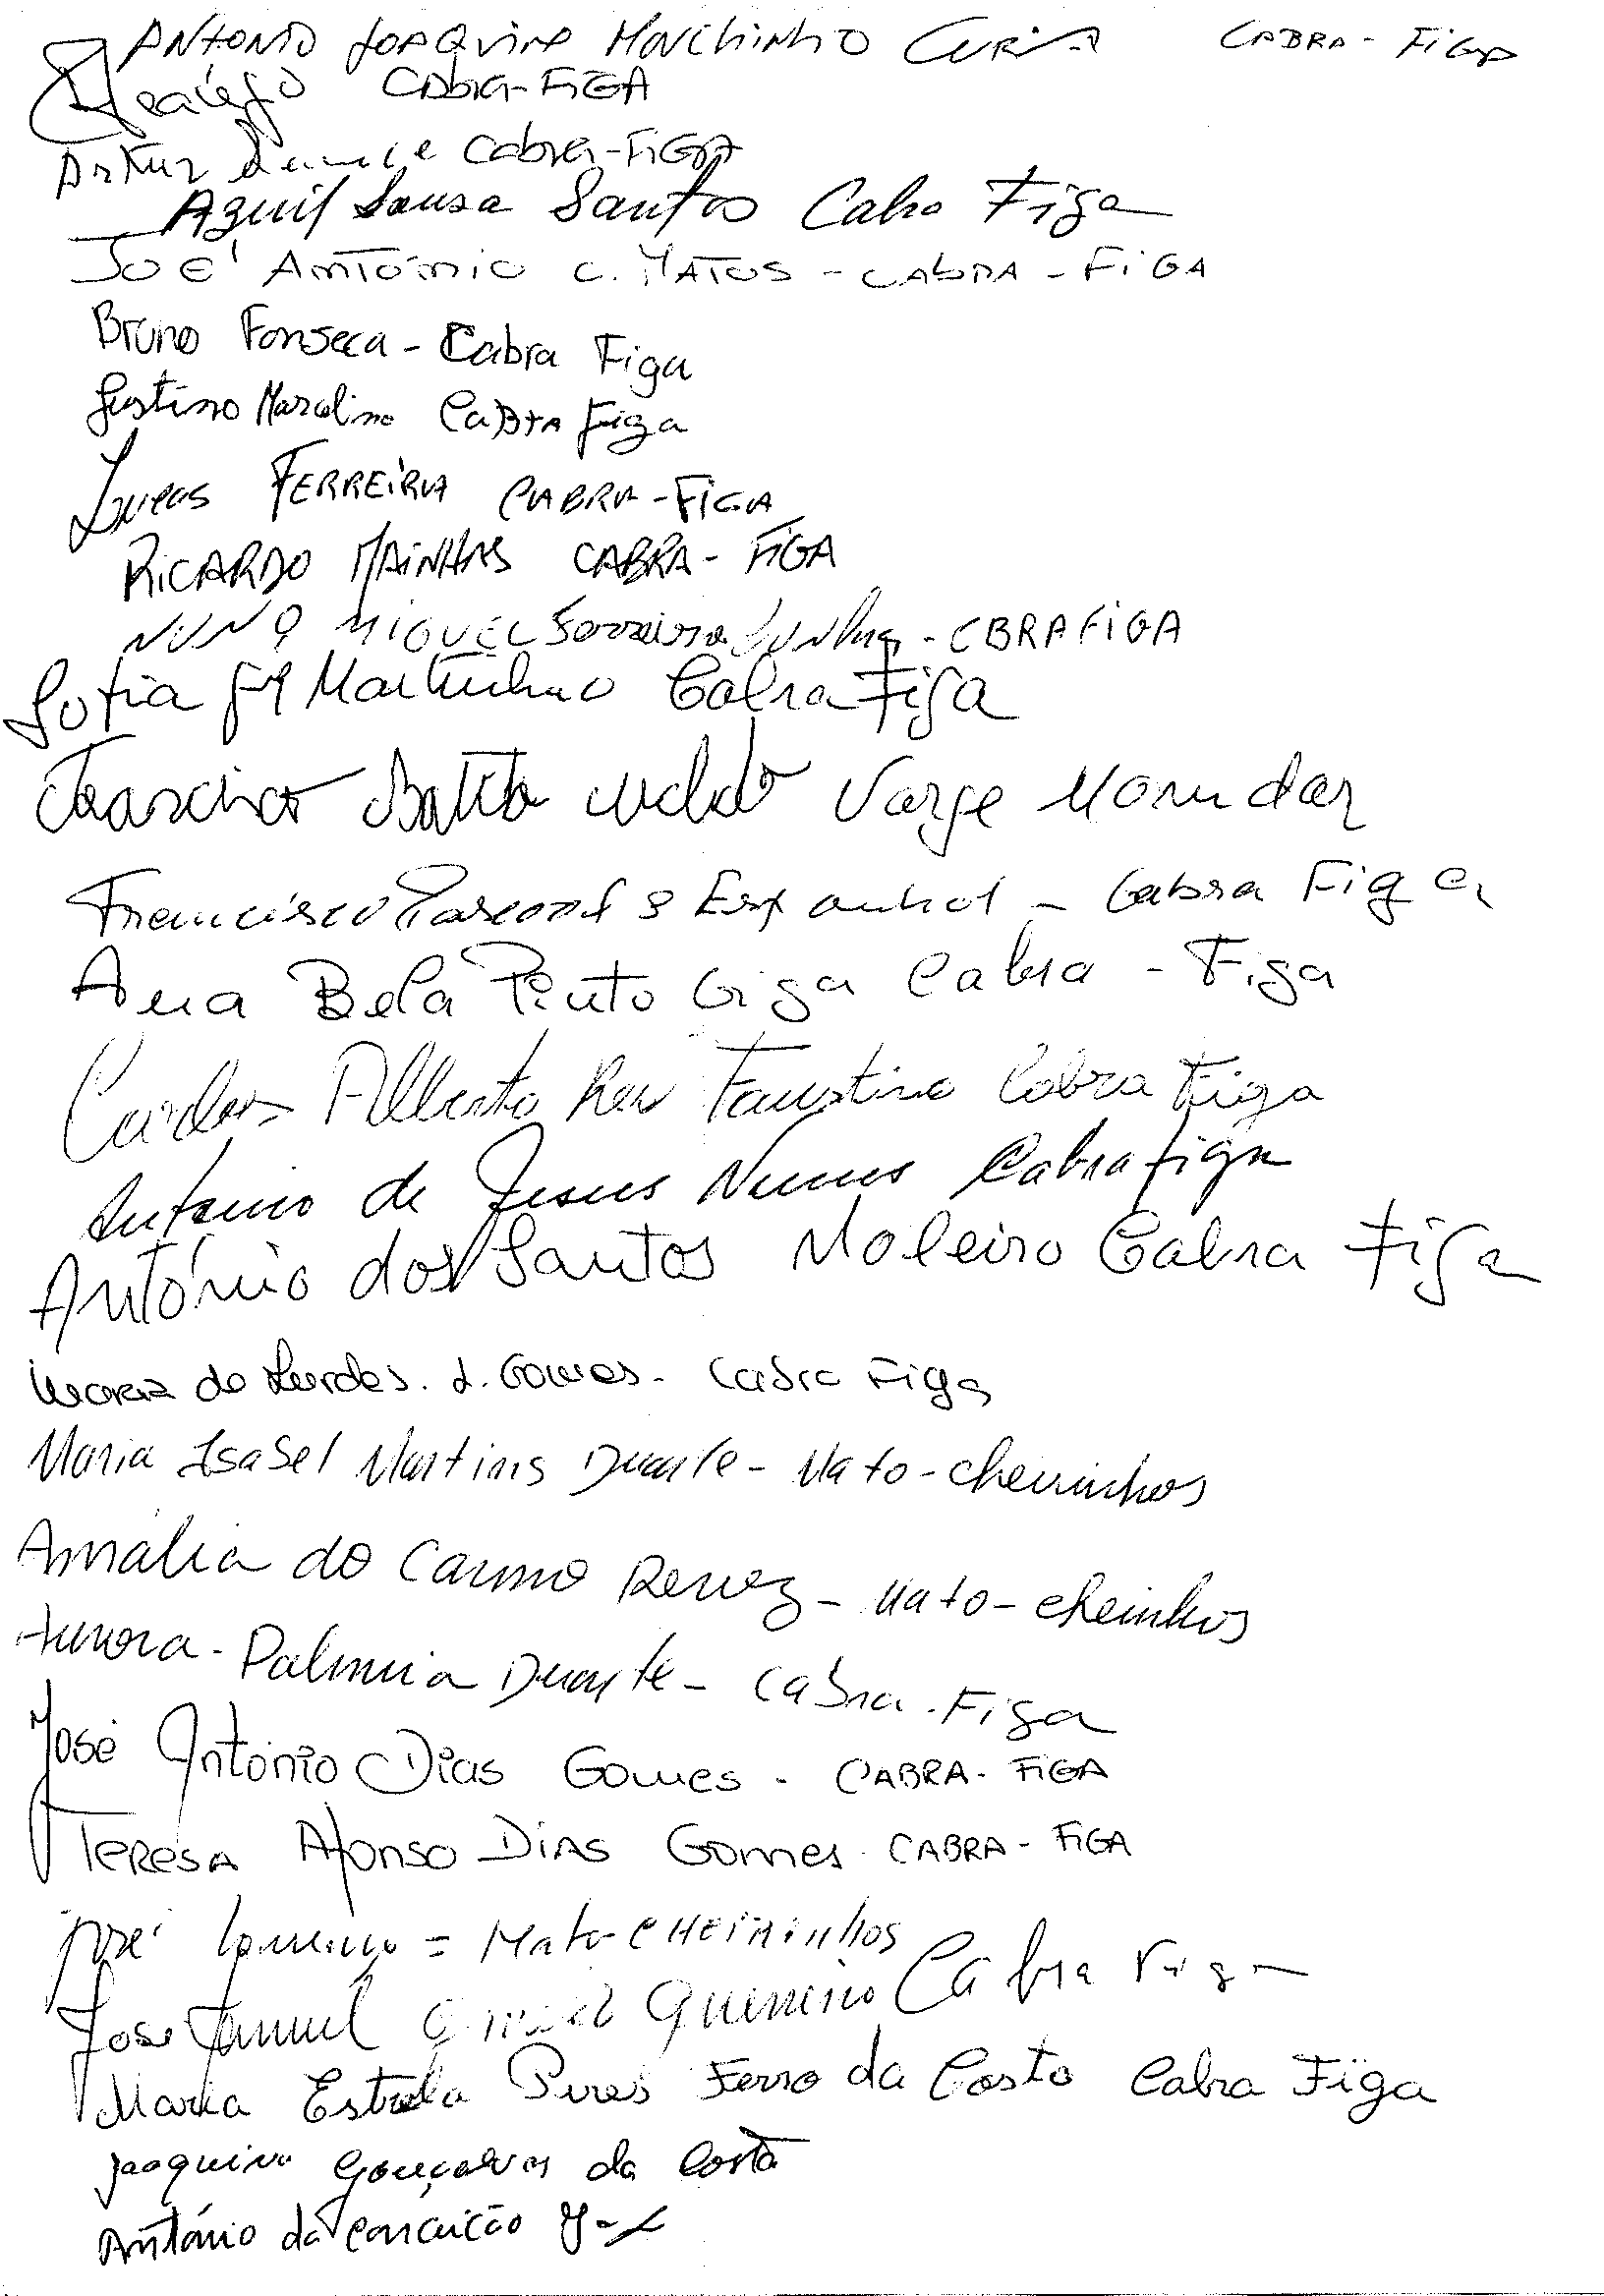 ANTONIO JOAQUIM CABRA-FIGA
Araújo CABRA-FIGA
Artur CABRA-FIGA
Sousa Santos Cabra Figa
JOSÉ ANTÓNIO C. MATOS - CABRA - FIGA
Bruno Fonseca - Cabra Figa
Justino Marcelino CaBra figa
Lucas FERREIRA CABRA-FIGA
RICARDO MAINHAS CABRA-FIGA
NUNO MIGUEL Ferreira Cunha - CBRAFIGA
Sofia Martinho Cabra Figa
Francisco Batista Varge Mondar
Francisco Pascoal Espanhol - Cabra Figa
Ana Bela Pinto Giga Cabra - Figa
Carlos Alberto Rei Faustino Cabra Figa
António de Jesus Nunes Cabra figa
António dos Santos Moleiro Cabra Figa
Maria de Lurdes. L. Gomes - Cabra Figa
Maria Isabel Martins Duarte - Mato-cheirinhos
Amalia do Carmo - Mato-cheirinhos
Aurora - Palmira Duarte - Cabra-Figa
José António Dias Gomes - CABRA-FIGA
TERESA Afonso DIAS Gomes CABRA-FIGA
José Lourenço = Mato CHEIRINHOS
José Manuel Guerreiro Cabra Figa
Maria Estrela Pires Ferro da Costa Cabra Figa
Joaquim Gonçalves da Costa
António da Conceição